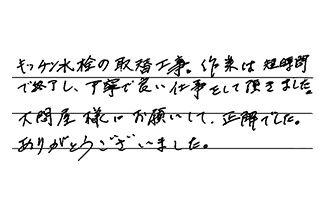 キッチン水栓の取替工事。作業は短時間
で終了し、丁寧で良い仕事をして頂きました。
大問屋様にお願いして、正解でした。
ありがとうございました。